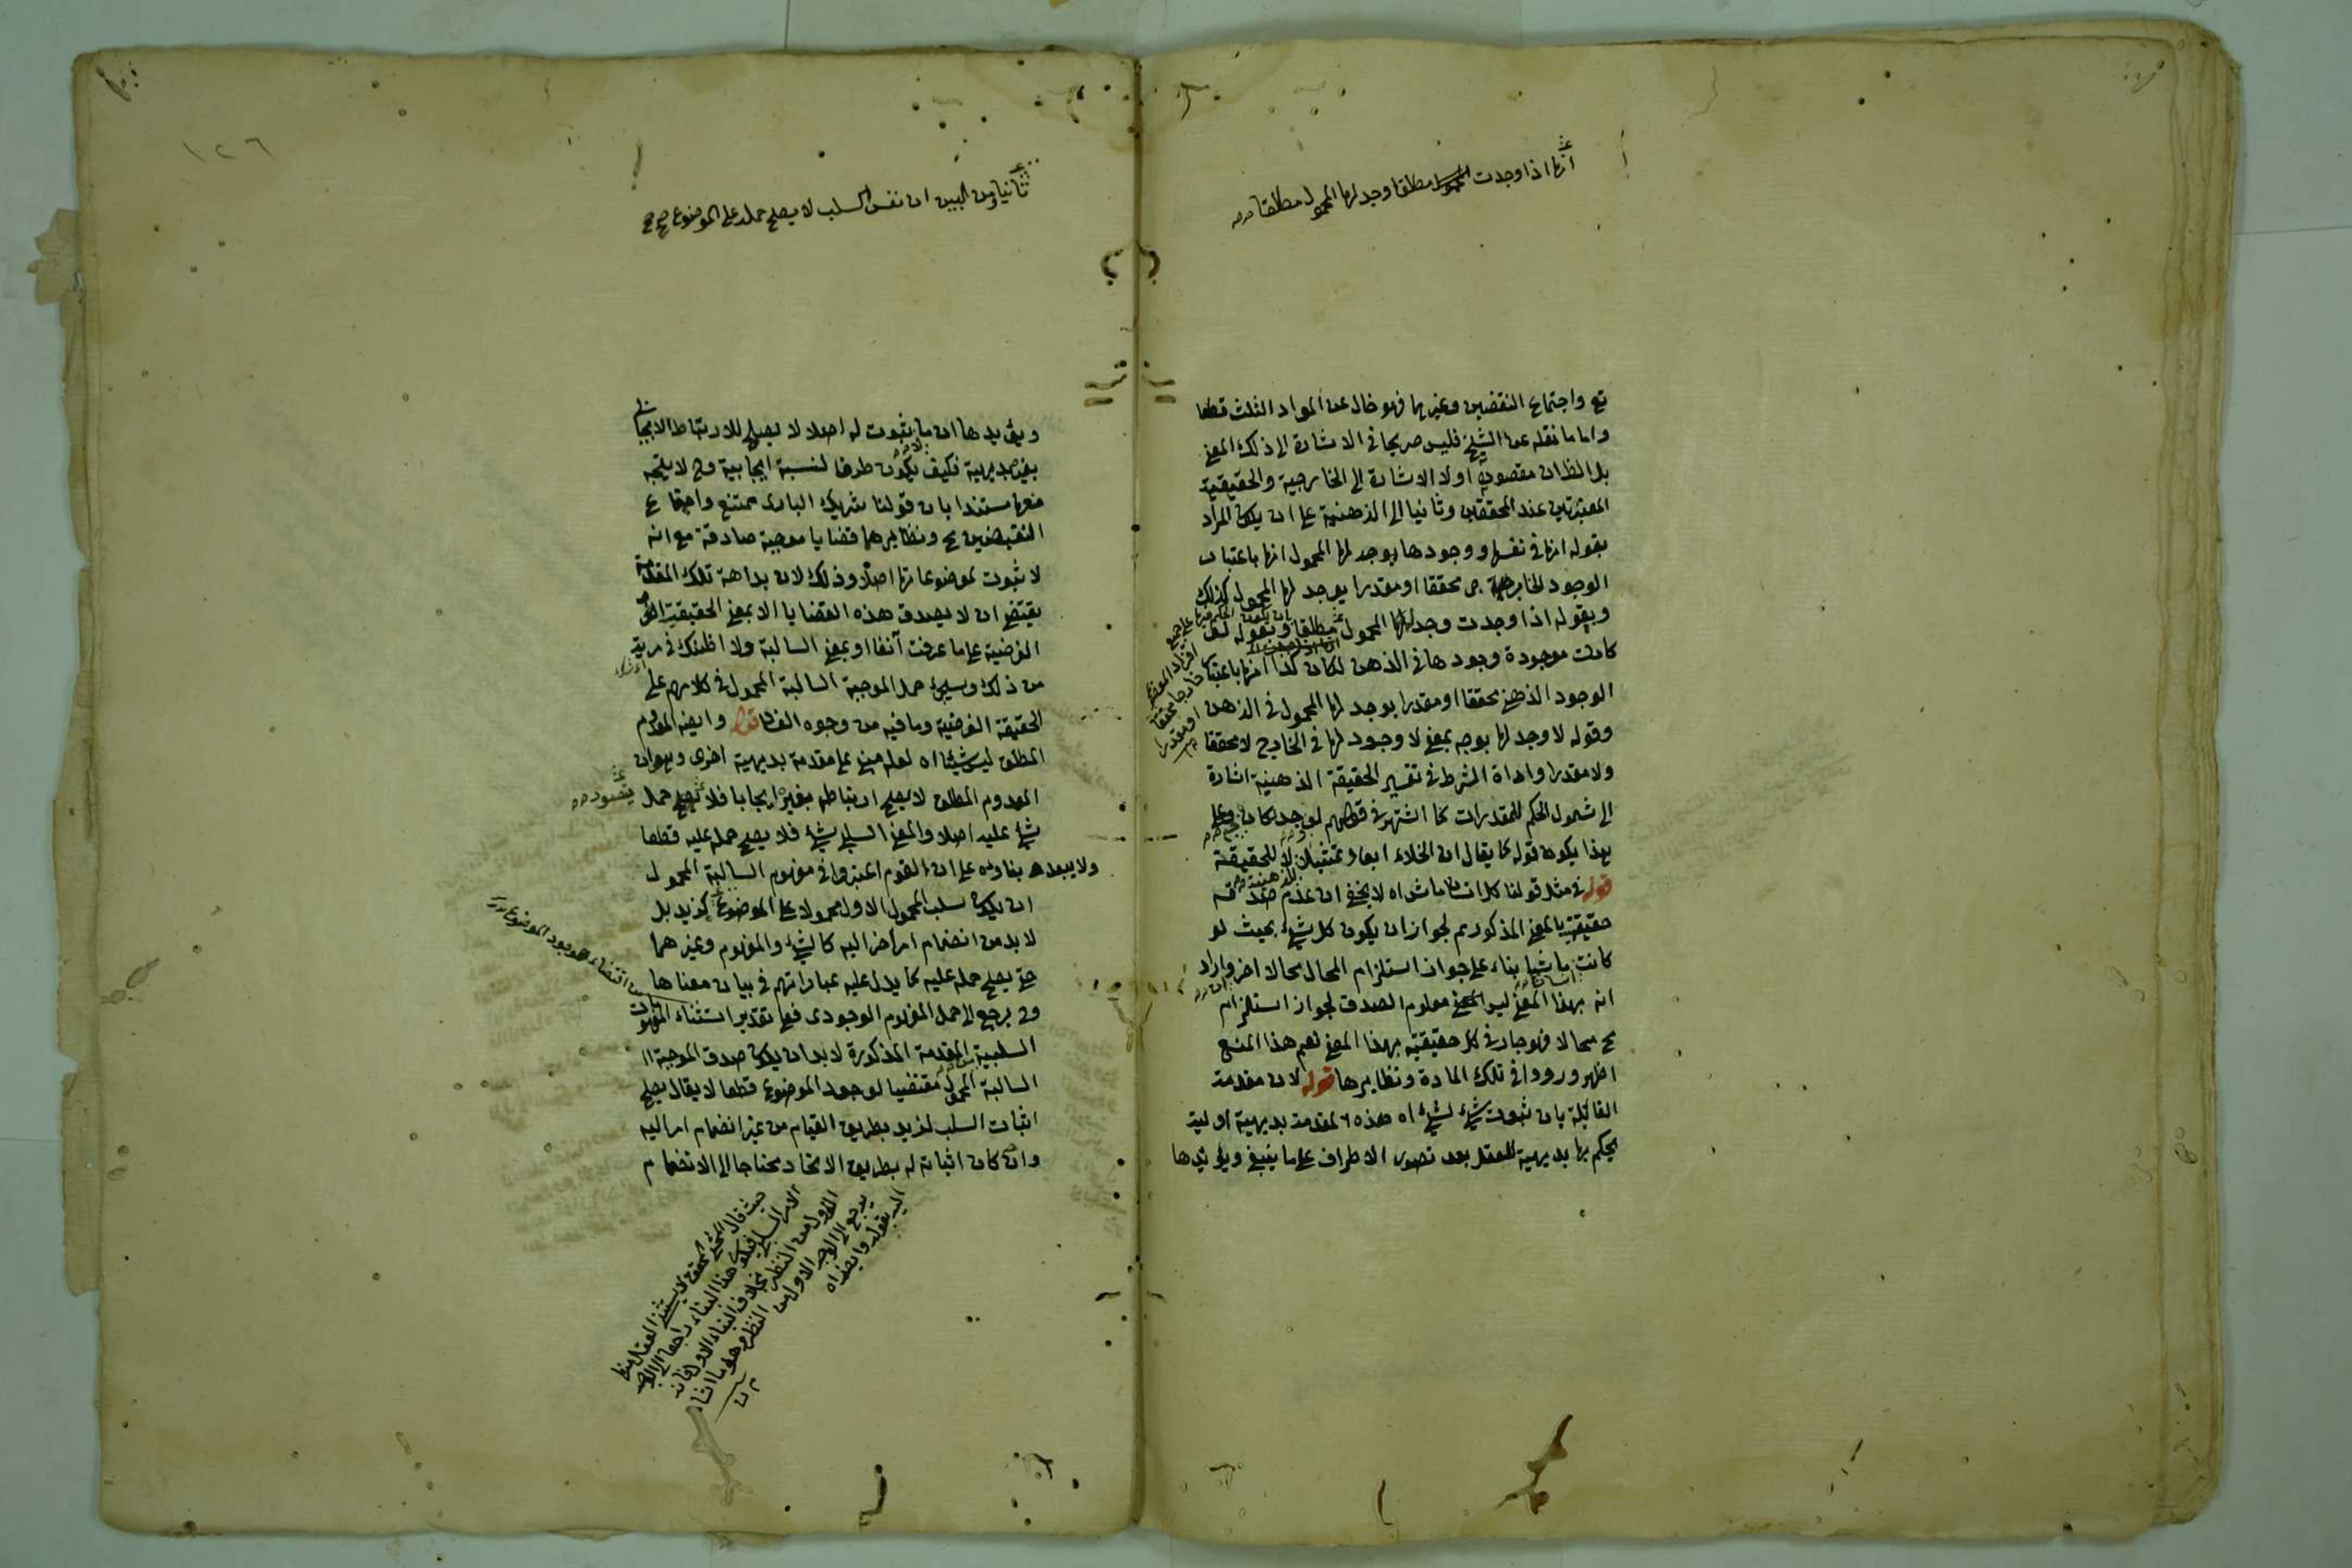 انها اذا وجدت مطلقا وجد لها المحمول مطلقا
تع واجتماع النقضين وغيرها فهو خال عن المواد الثلث قطعا
واما ما نقله عن الشيخ فليس صريحا في الاشارة الى ذلك المعنى
بل الظان مقصوده اولا الاشارة الى الخارجية والحقيقية
المعتبرتين عند المحققين وثانيا الى الذهنية على ان يكون المراد
بقوله انها في نفسها ووجودها يوجد لها المحمول انها باعتبار
الوجود الخارجي محققا او مقدرا يوجد لها المحمول كذلك
وبقوله اذا وجدت وجد لها المحمول مطلقا وبقوله لو
كانت موجودة وجودها في الذهن لكان كذا انها باعتبار
الوجود الذهني محققا او مقدرا يوجد لها المحمول في الذهن
وقوله لا وجد لها بوجه بمعنى لا وجود لها في الخارج لا محققا
ولا مقدرا واداة الشرط في تفسير الحقيقة الذهنية اشارة
الى شمول الحكم للمقدرات كما اشتهر في قولهم لو وجد كان وعلى
بهذا يكون قوله كما يقال ان الخلاء ابعاد تمثيلا للحقيقة
قوله في مثل قولنا كل انسان ماش اه لا يخفى ان عدم صدقه
حقيقة بالمعنى المذكور مم لجواز ان يكون كل شيء بحيث لو
كانت ماشيا بناء على جواز استلزام المحال محالا اخر واراد
انه بهذا المعنى ليس معلوم الصدق لجواز استلزام
مح محالا فهو جار في كل حقيقية بهذا المعنى نعم هذا المنع
اظهر ورودا في تلك المادة ونظايرها قوله لان مقدمة
القائلة بان ثبوت شيء لشيء اه هذه المقدمة بديهية اولية
يحكم بها بديهية العقل بعد تصور الاطراف على ما ينبغي ويؤيدها
١٢٦
ثانيا ومن البين ان نفس السلب لا يصلح حمله على الموضوع صح
ويؤيدها ان ما لا ثبوت له اصلا لا يصلح للارتباط الايجابي
بغيره بديهية فكيف يكون طرفا لنسبة ايجابية وح لا يتجه
منعها مستندا بان قولنا شريك الباري ممتنع واجتماع
النقيضين مح ونظايرهما قضايا موجبة صادقة مع انه
لا ثبوت لموضوعاتها اصلا وذلك لان بداهة تلك المقدمة
يقتضي ان لا يصدق هذه القضايا الا بمعنى الحقيقية
الفرضية على ما عرفت آنفا او بمعنى السالبة ولا اظنك في مرية
من ذلك وسيجيء حمل الموجبة السالبة المحمول في كلامهم على
الحقيقة الفرضية وما فيه من وجوه الفساد قوله وايضا المعدوم
المطلق ليس شيئا اه لعله مبني على مقدمة بديهية اخرى وهو ان
المعدوم المطلق لا يصلح ارتباطه بغيره ايجابا فلا يصلح حمل
شيء عليه اصلا والمعنى السلبي شيء فلا يصلح حمله عليه قطعا
ولا يبعد بناؤه على ان القوم اعتبروا في مفهوم السالبة المحمول
ان يكون سلب المحمول الاول محمولا على الموضوع كزيد بل
لا بد من انضمام امر اخر اليه كالشيء والمفهوم وغيرهما
حتى يصلح حمله عليه كما يدل عليه عباراتهم في بيان معناها
وح يرجع الى حمل المفهوم الوجودي فعلى تقدير استثناء المفهومات
السلبية المقدمة المذكورة لا بد ان يكون صدق الموجبة
السالبة المحمول مقتضيا لوجود الموضوع قطعا لا يقال يصلح
اثبات السلب لزيد بطريق القيام من غير انضمام امر اليه
وان كان اثباته له بطريق الاتحاد محتاجا الى الانضمام
اقتضاء وجود الموضوع
الامر السلبي فيكون هذا البناء راجعا الى الوجه
الاول من النظر بخلاف البناء الاول فانه
يرجع الى الوجه الاول من النظر وهو ما اشار
اليه بقوله وايضا اه